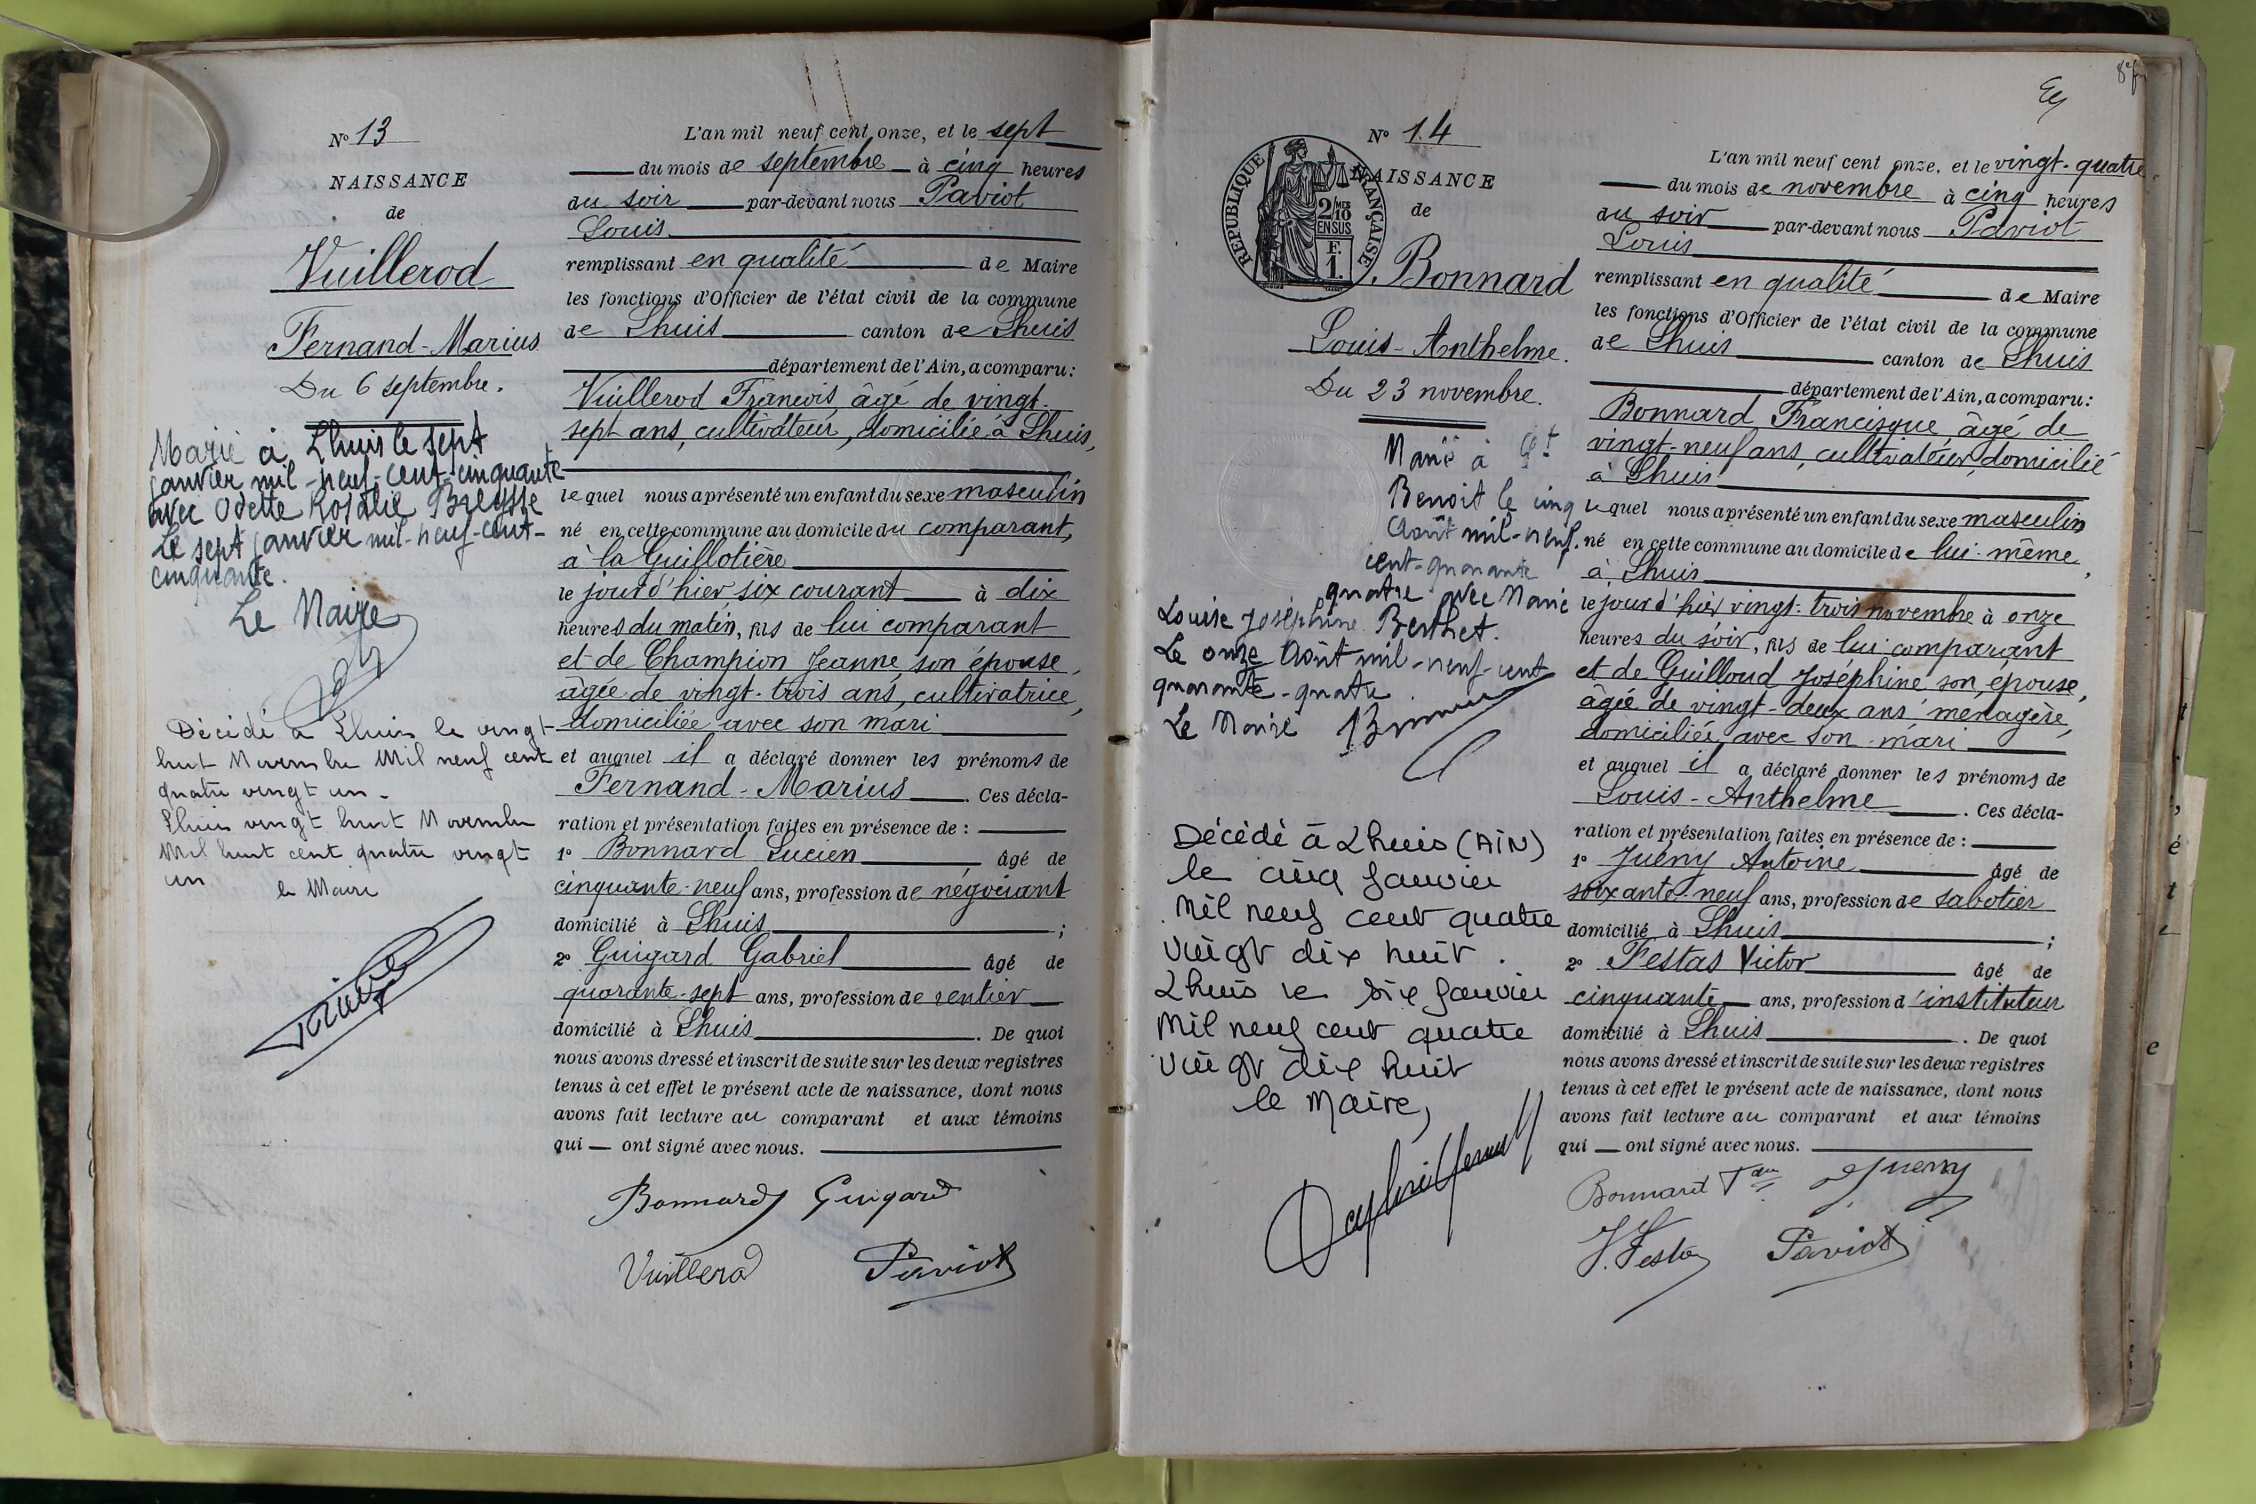 N° 13
NAISSANCE
de
Vuillerod
Fernand-Marius
Du 6 septembre.
Marié à Lhuis le sept
janvier mil-neuf-cent-cinquante
avec Odette Rosalie Breysse
Le sept janvier mil-neuf-cent-
cinquante.
Le Maire
Décédé à Lhuis le vingt
huit Novembre Mil neuf cent
quatre vingt un-
Lhuis vingt huit Novembre
Mil huit cent quatre vingt
un
le Maire
L'an mil neuf cent onze, et le sept
du mois de septembre à cinq heures
du soir par-devant nous Paviot
Louis
remplissant en qualité de Maire
les fonctions d'Officier de l'état civil de la commune
de Lhuis canton de Lhuis
département de l'Ain, a comparu:
Vuillerod Francois âgé de vingt-
sept ans, cultivateur, domicilié à Lhuis,
lequel nous a présenté un enfant du sexe masculin
né en cette commune au domicile du comparant,
à la Guillotière
le jour d'hier six courant à dix
heures du matin, fils de lui comparant
et de Champion Jeanne, son épouse,
âgée de vingt-trois ans, cultivatrice,
domiciliée avec son mari
et auquel il a déclaré donner les prénoms de
Fernand-Marius. Ces décla-
ration et présentation faites en présence de :
1° Bonnard Lucien âgé de
cinquante-neuf ans, profession de négociant
domicilié à Lhuis ;
2° Guigard Gabriel âgé de
quarante-sept ans, profession de rentier
domicilié à Lhuis. De quoi
nous avons dressé et inscrit de suite sur les deux registres
tenus à cet effet le présent acte de naissance, dont nous
avons fait lecture au comparant et aux témoins
qui — ont signé avec nous.
Bonnard Guigard
Vuillerod Paviot
N° 14
NAISSANCE
de
REPUBLIQUE FRANÇAISE
2/10 MES
EN SUS
F.
1.
Bonnard
Louis-Anthelme.
Du 23 novembre.
Marié à St
Benoit le cinq
Août mil-neuf-
cent-quarante
quatre avec Marie
Louise Joséphine Berthet.
Le onze Août mil-neuf-cent
quarante-quatre.
Le Maire
Décédé à Lhuis (AIN)
le cinq Janvier
Mil neuf cent quatre
vingt dix huit.
Lhuis le six Janvier
Mil neuf cent quatre
vingt dix huit
le Maire,
L'an mil neuf cent onze, et le vingt-quatre
du mois de novembre à cinq heures
du soir par-devant nous Paviot
Louis
remplissant en qualité de Maire
les fonctions d'Officier de l'état civil de la commune
de Lhuis canton de Lhuis
département de l'Ain, a comparu:
Bonnard Francisque âgé de
vingt-neuf ans, cultivateur, domicilié
à Lhuis
lequel nous a présenté un enfant du sexe masculin
né en cette commune au domicile de lui-même,
à Lhuis
le jour d'hier vingt-trois novembre à onze
heures du soir, fils de lui comparant
et de Guilloud Joséphine son épouse,
âgée de vingt-deux ans ménagère,
domiciliée avec son mari
et auquel il a déclaré donner les prénoms de
Louis-Anthelme. Ces décla-
ration et présentation faites en présence de :
1° Juény Antoine âgé de
soixante-neuf ans, profession de sabotier
domicilié à Lhuis ;
2° Festas Victor âgé de
cinquante ans, profession d'instituteur
domicilié à Lhuis. De quoi
nous avons dressé et inscrit de suite sur les deux registres
tenus à cet effet le présent acte de naissance, dont nous
avons fait lecture au comparant et aux témoins
qui — ont signé avec nous.
Bonnard Juény
V. Festas Paviot